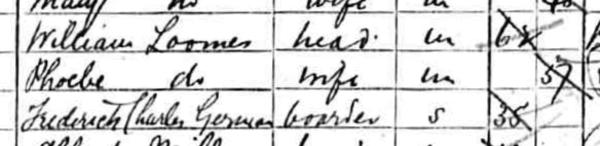 Mary do wife m
William Loomes head m 62
Phoebe do wife m 57
Frederick Charles German boarder s 35